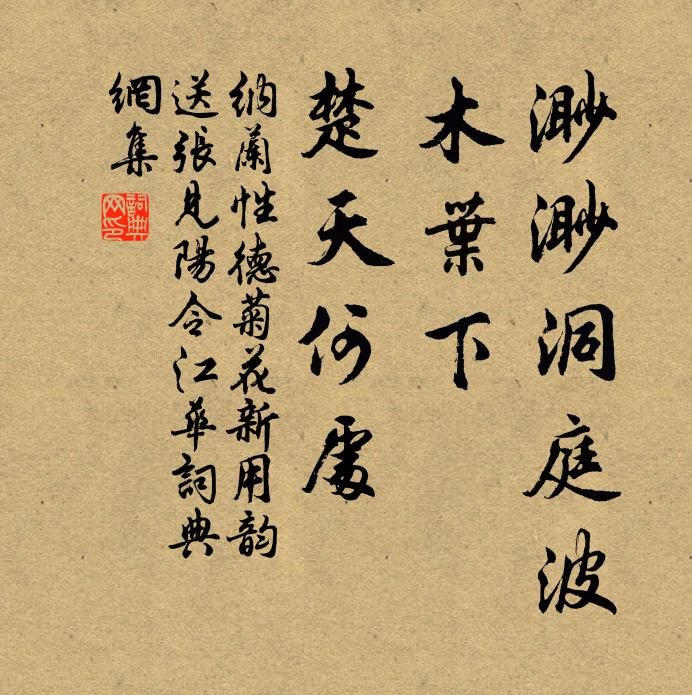 渺渺洞庭波
木葉下
楚天何處
納蘭性德菊花新用韵
送張見陽令江華詞典
網集
詞典網印